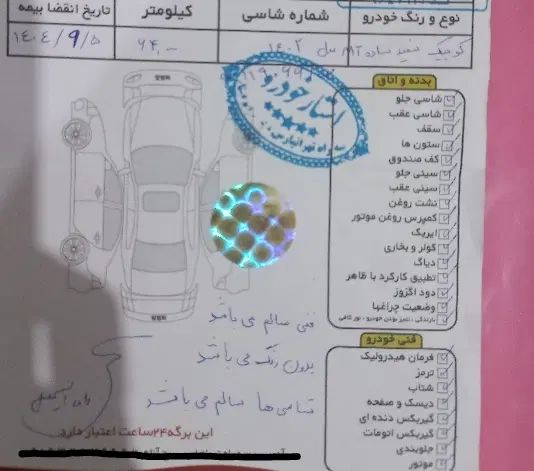 نوع و رنگ خودرو
شماره شاسی
کیلومتر
تاریخ انقضا بیمه
کوییک سفید ساده AM مدل ۱۴۰۲
۶۴,۰۰۰
۱۴۰۴/۹/۵
استار خودرو
بدنه و اتاق
شاسی جلو
شاسی عقب
سقف
ستون ها
کف صندوق
سینی جلو
سینی عقب
نشت روغن
کمپرس روغن موتور
ایربگ
کولر و بخاری
دیاگ
تطبیق کارکرد با ظاهر
دود اگزوز
وضعیت چراغها
بارندگی ، تمیز بودن خودرو ، نور کافی
فنی سالم می باشد
بدون رنگ می باشد
تمامی ها سالم می باشد
فنی خودرو
فرمان هیدرولیک
ترمز
شتاب
دیسک و صفحه
گیربکس دنده ای
گیربکس اتومات
جلوبندی
موتور
این برگه ۲۴ ساعت اعتبار دارد